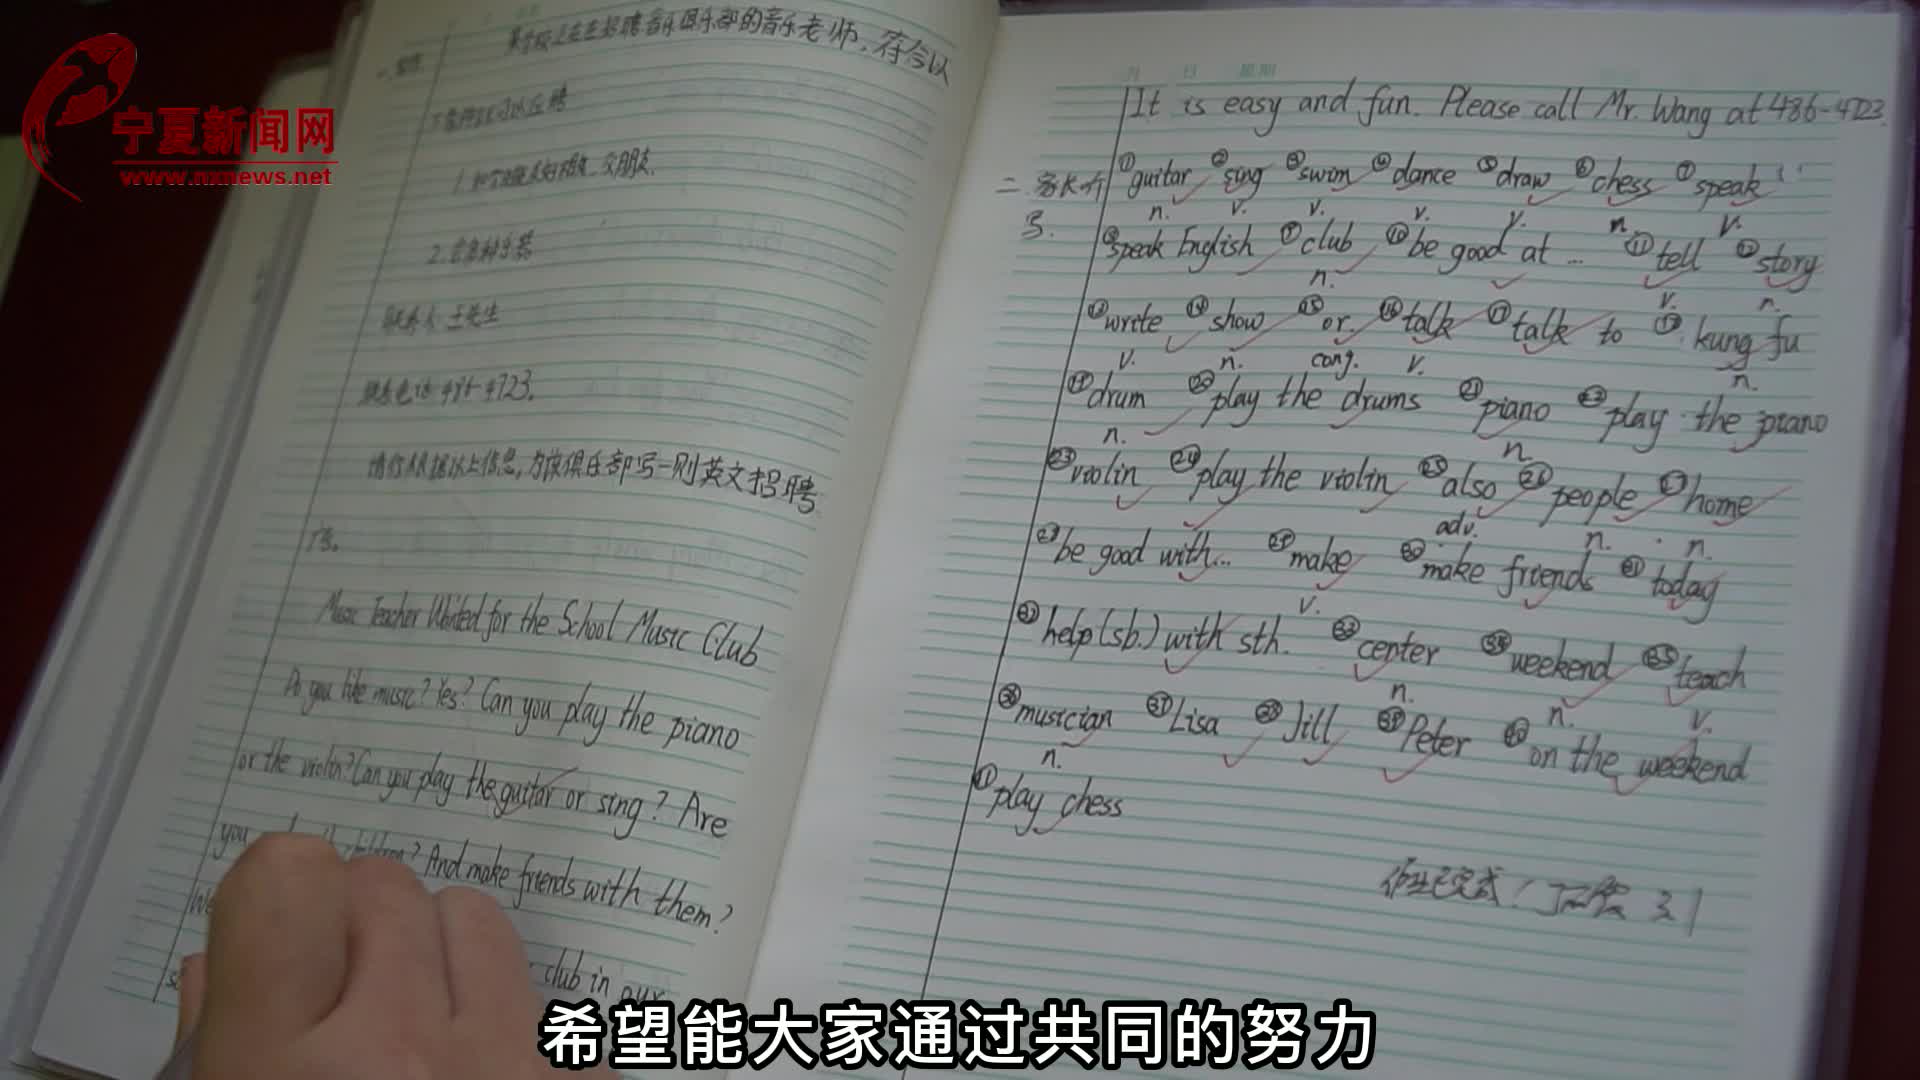 宁夏新闻网
www.nxnews.net
音乐俱乐部的音乐老师,符合以
2.会某种乐器
联系人:王先生
请你根据以上信息,为该俱乐部写一则英文招聘
Music Teacher Wanted for the School Music Club
Do you like music? Yes? Can you play the piano
or the violin? Can you play the guitar or sing? Are
you children? And make friends with them?
club in our
月 日 星期
It is easy and fun. Please call Mr. Wang at 486-4723.
二 家长听 ①guitar ②sing ③swim ④dance ⑤draw ⑥chess ⑦speak
n. v. v. v. v. n. v.
写. ⑧speak English ⑨club ⑩be good at ... ⑪tell ⑫story
n. v. n.
⑬write ⑭show ⑮or ⑯talk ⑰talk to kung fu
v. n. conj. v. n.
⑲drum ⑳play the drums ㉑piano play the piano
n. n
㉓violin ㉔play the violin ㉕also ㉖people ㉗home
adv. n. n.
be good with... make make friends ㉛today
v.
help (sb.) with sth. center weekend teach
n. n. v.
musician Lisa Jill Peter on the weekend
n.
play chess
希望能大家通过共同的努力